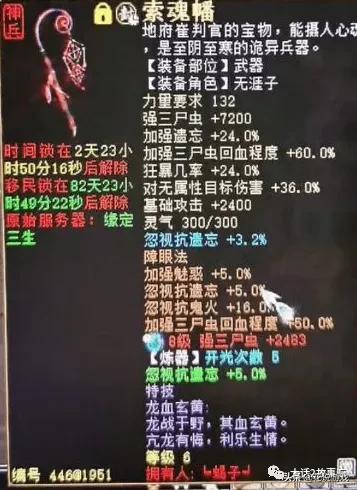 神兵
索魂幡
地府崔判官的宝物，能摄人心魂
，是至阴至寒的诡异兵器。
【装备部位】武器
【装备角色】无涯子
力量要求 132
强三尸虫 +7200
加强遗忘 +24.0%
加强三尸虫回血程度 +60.0%
狂暴几率 +24.0%
对无属性目标伤害 +36.0%
基础攻击 +2400
灵气 300/300
忽视抗遗忘 +3.2%
障眼法
加强魅惑 +5.0%
忽视抗遗忘 +5.0%
忽视抗鬼火 +16.0%
加强三尸虫回血程度 +50.0%
8级 强三尸虫 +2483
【炼器】开光次数 5
忽视抗遗忘 +5.0%
特技
龙血玄黄：
龙战于野，其血玄黄。
亢龙有悔，利乐生情。
等级 6
拥有人：╘蝎子┙
时间锁在2天23小
时50分16秒后解除
移民锁在82天23小
时49分22秒后解除
原始服务器：缘定
三生
编号 446@1951
大话2故事